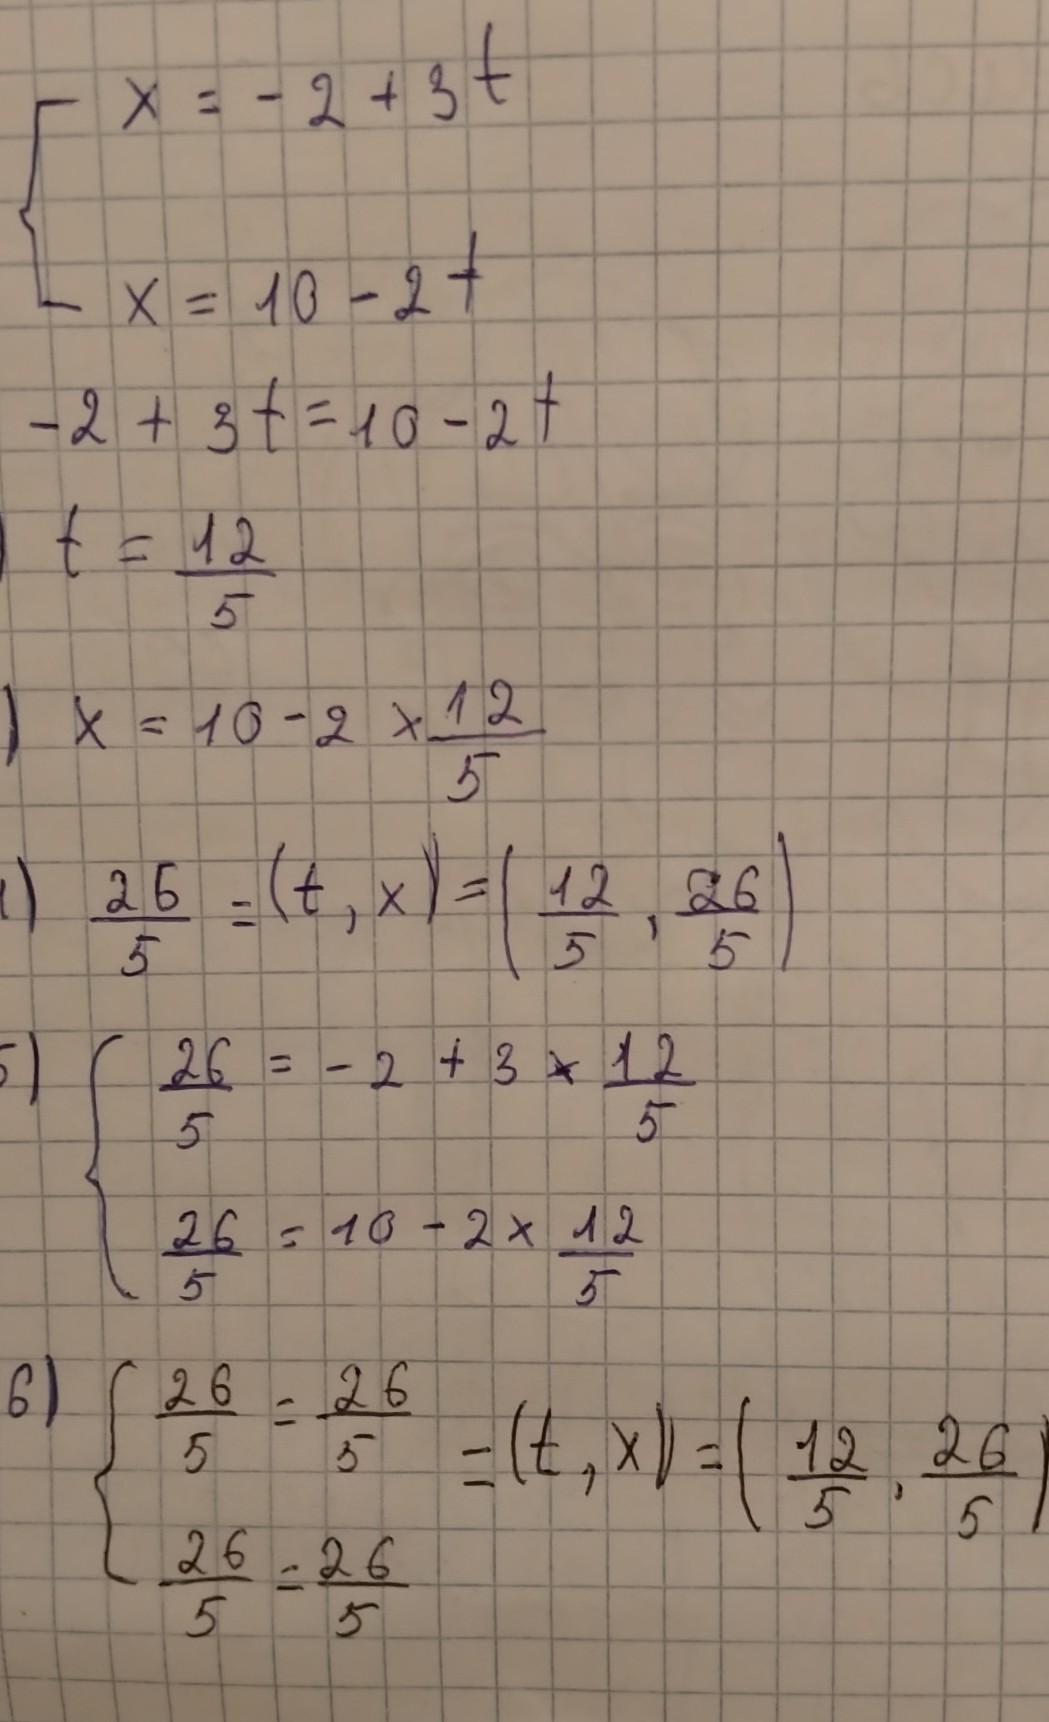 x = -2 + 3t
x = 10 - 2t
-2 + 3t = 10 - 2t
) t = 12/5
) x = 10 - 2 × 12/5
) 26/5 = (t, x) = (12/5, 26/5)
5) 26/5 = -2 + 3 × 12/5
26/5 = 10 - 2 × 12/5
6) 26/5 = 26/5 = (t, x) = (12/5, 26/5)
26/5 = 26/5